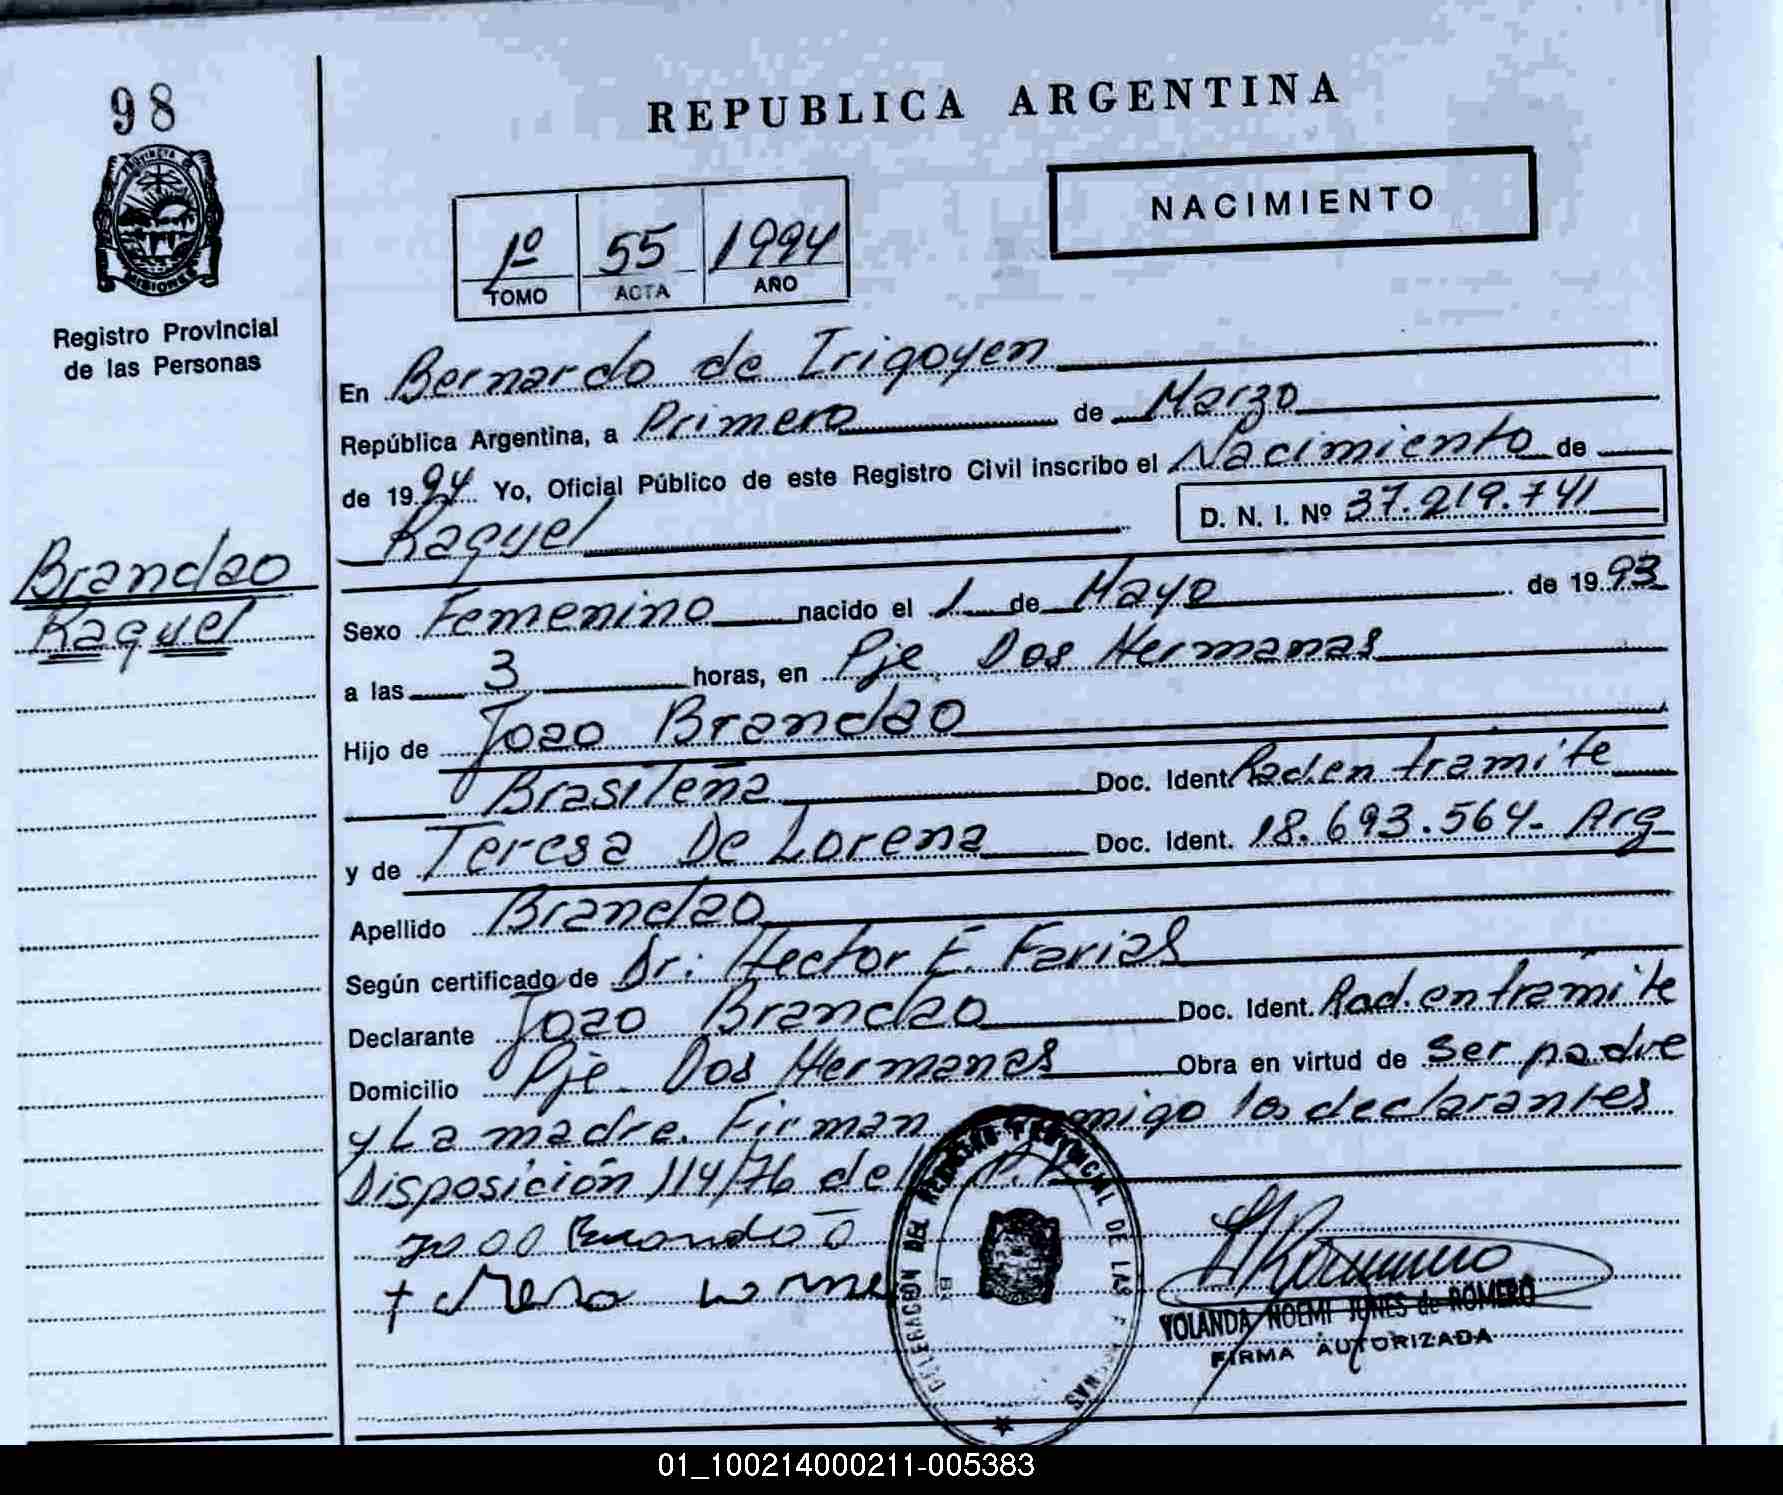 98
REPUBLICA ARGENTINA
NACIMIENTO
1º 55 1994
TOMO ACTA AÑO
Registro Provincial
de las Personas
En Bernardo de Irigoyen
República Argentina, a Primero de Marzo
de 1994 Yo, Oficial Público de este Registro Civil inscribo el Nacimiento de
Raquel D. N. I. Nº 37.219.741
Brandao
Raquel
Sexo Femenino nacido el 1 de Mayo de 1993
a las 3 horas, en Pje Dos Hermanas
Hijo de Joao Brandao
Brasileña Doc. Ident. Rad. en tramite
y de Teresa De Lorena Doc. Ident. 18.693.564- Arg
Apellido Brandao
Según certificado de Dr: Hector E. Farias
Declarante Joao Brandao Doc. Ident. Rad. en tramite
Domicilio Pje Dos Hermanas Obra en virtud de ser padre
y La madre. Firman los declarantes
Disposición 114/76 del
DELEGACION DEL REGISTRO PROVINCIAL DE LAS
YOLANDA NOEMI JUNES de ROMERO
FIRMA AUTORIZADA
01_100214000211-005383